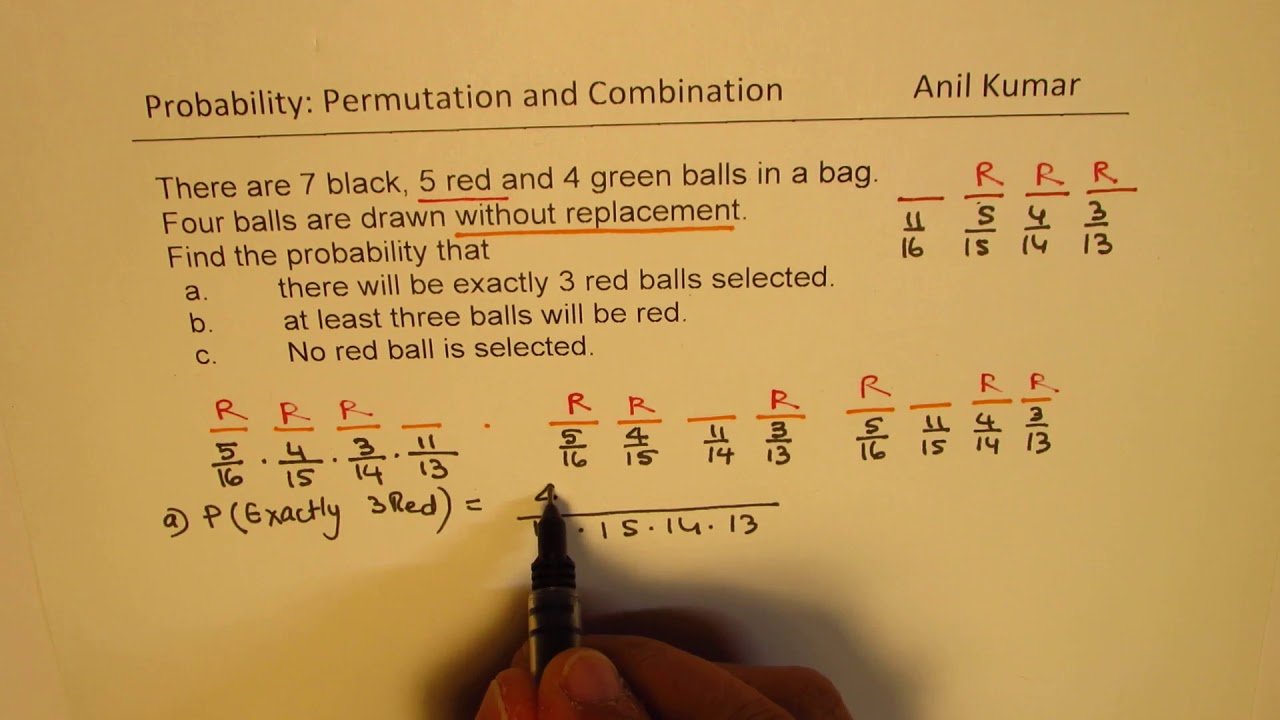 Probability: Permutation and Combination Anil Kumar
There are 7 black, 5 red and 4 green balls in a bag.
Four balls are drawn without replacement.
Find the probability that
a. there will be exactly 3 red balls selected.
b. at least three balls will be red.
c. No red ball is selected.
__ R R R
11/16 5/15 4/14 3/13
R R R __ . R R __ R R __ R R
5/16 · 4/15 · 3/14 · 11/13 5/16 4/15 11/14 3/13 5/16 11/15 4/14 3/13
a) P(Exactly 3Red) = 4·
· 15 · 14 · 13